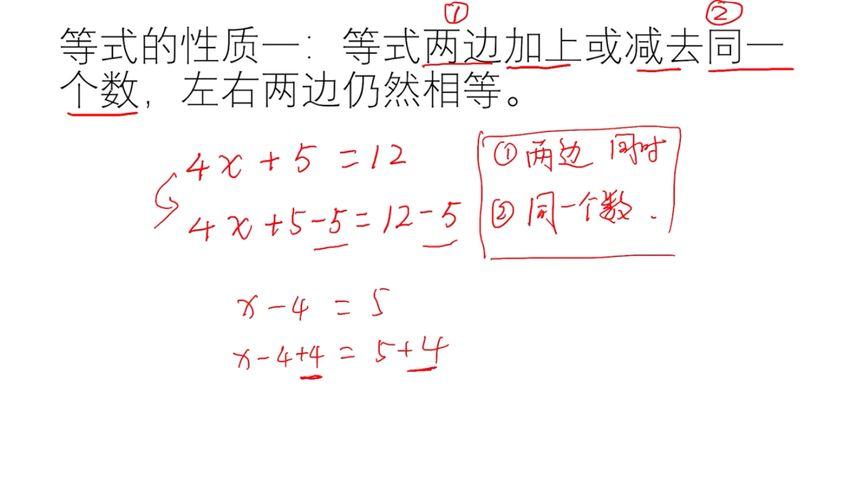 ① ②
等式的性质一：等式两边加上或减去同一
个数，左右两边仍然相等。
4x+5=12
4x+5-5=12-5
①两边 同时
②同一个数.
x-4=5
x-4+4=5+4